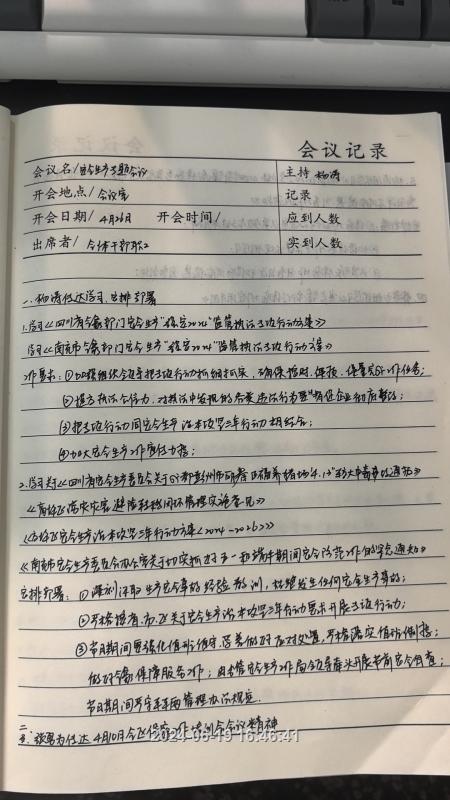 会议记录
会议名/安全生产专题会议 主持 杨涛
开会地点/会议室 记录
开会日期/4月26日 开会时间/ 应到人数
出席者/全体干部职工 实到人数
一、杨涛传达学习、安排部署
1.学习《四川省气象部门安全生产"稳安2024"监管执法专项行动方案》
学习《南充市气象部门安全生产"稳安2024"监管执法专项行动方案》
工作要求:①加强组织领导把专项行动抓细抓实,确保按时、保质、保量完成工作任务;
②提高执法全结力,对执法中发现的各类违法行为要督促企业彻底整改;
③把专项行动同安全生产治本攻坚三年行动相结合;
④加大安全生产工作宣传力度;
2.学习关于《四川省安全生产委员会关于成都彭州市 养猪场"4.12"较大中毒事故通报》
《 灾害避险转移闭环管理实施意见》
《 安全生产治本攻坚三年行动方案(2024-2026)》
《南充市安全生产委员会办公室关于切实抓好五一和端午期间安全防范工作的紧急通知》
安排部署:①深刻汲取生产安全事故经验教训,杜绝发生任何安全生产事故;
②严格按省、市、 关于安全生产治本攻坚三年行动要求开展专项行动;
③节日期间要强化值班值守,妥善做好应对处置,严格落实值班制度;
做好气象保障服务工作;由分管安全生产工作局领导牵头开展节前安全自查;
节日期间严守车辆管理办法规定.
二、 传达4月10日 工作 会议精神
2024-06-19 16:46:41